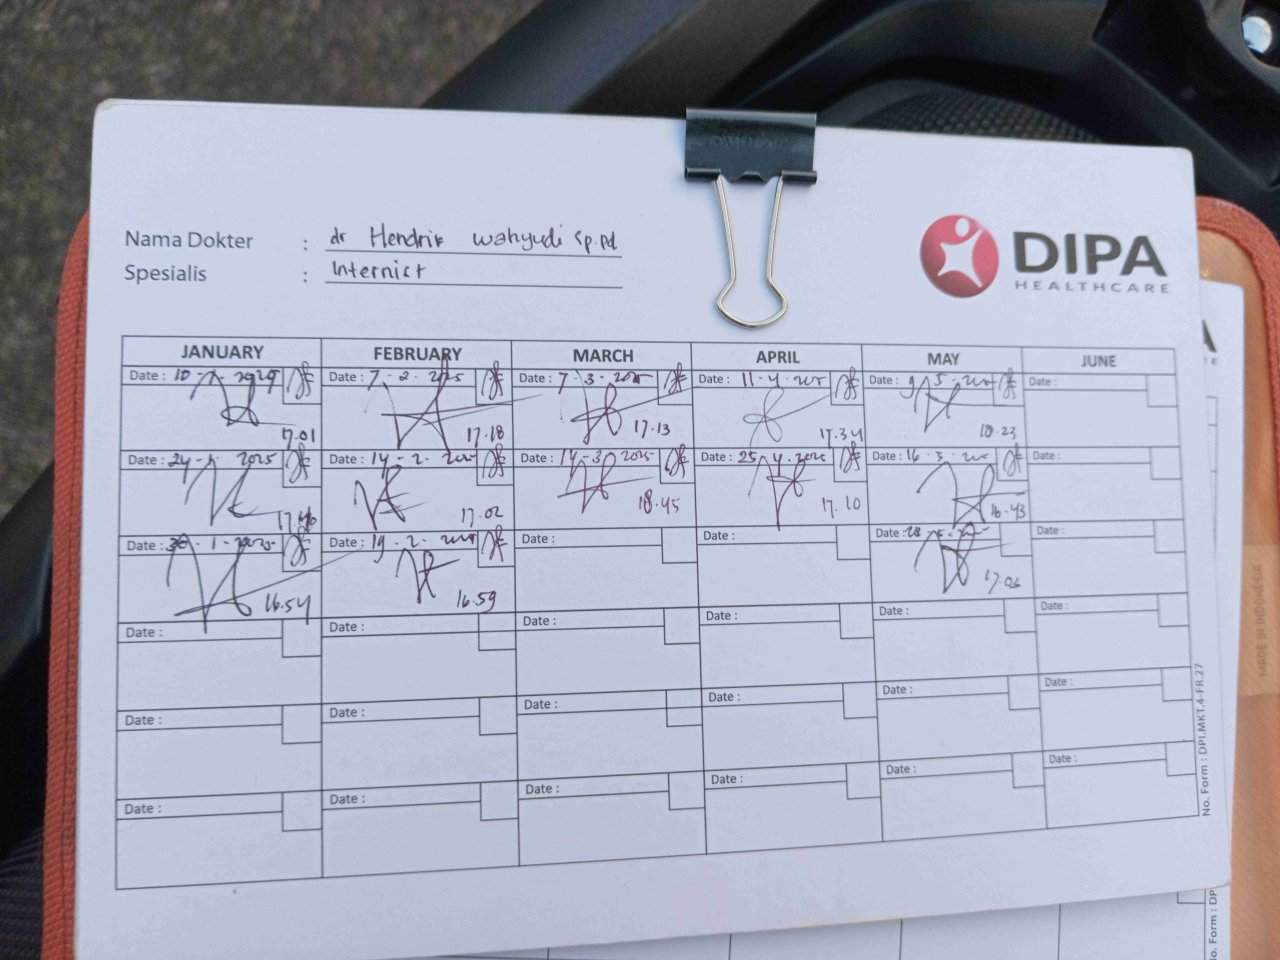 Nama Dokter : dr Hendrik Wahyudi Sp.Pd
Spesialis : Internist
DIPA
HEALTHCARE
JANUARY FEBRUARY MARCH APRIL MAY JUNE
Date : Date : 7-2-2025 Date : 7-3-2025 Date : 11-4-2025 Date : 9-5-2025 Date :
17.01 17.18 17.13 17.34
Date : 24-1-2025 Date : 14-2-2025 Date : 14-3-2025 Date : 25-4-2025 Date : 16-3-2025 Date :
17.02 18.45 17.10 16.43
Date : 30-1-2025 Date : 19-2-2025 Date : Date : Date : Date :
16.54 16.59 17.06
Date : Date : Date : Date : Date : Date :
Date : Date : Date : Date : Date : Date :
Date : Date : Date : Date : Date : Date :
No. Form : DPI.MKT.4-FR.27
A
RE
No. Form : DP
MADE IN INDONES